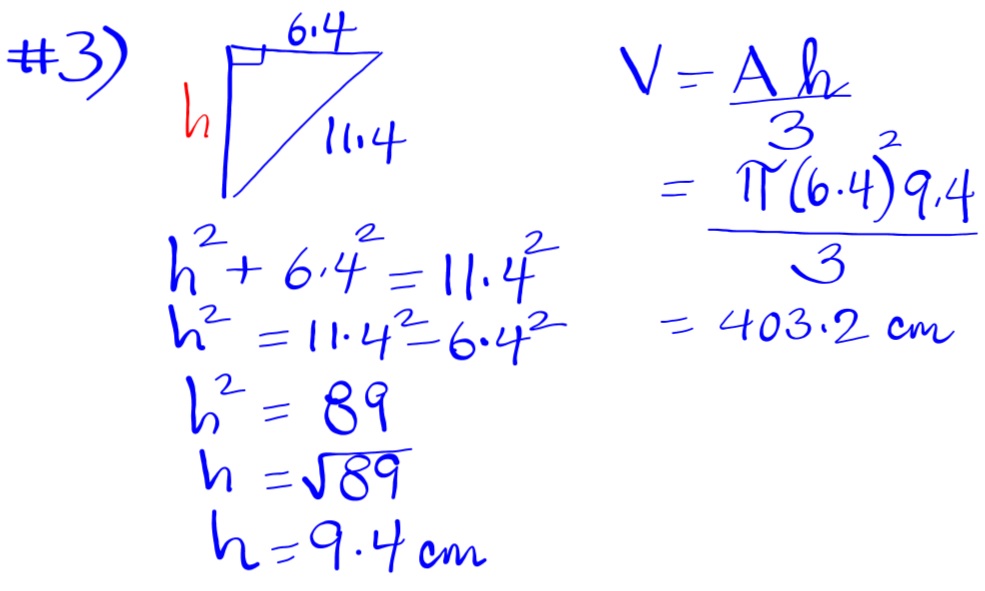 #3)
6.4
h
11.4
h² + 6.4² = 11.4²
h² = 11.4² - 6.4²
h² = 89
h = √89
h = 9.4 cm
V = A h
3
= π(6.4)² 9.4
3
= 403.2 cm